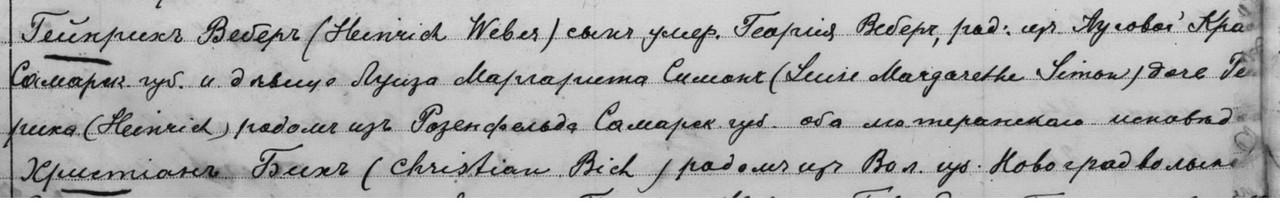 Гейнрихъ Веберъ (Heinrich Weber) сынъ умер. Георгія Веберъ, род. изъ Луговой
Самарск. губ. и дѣвица Луиза Маргарита Симонъ (Luise Margarethe Simon) дочь Ге
риха (Heinrich) родомъ изъ Розенфельда Самарск. губ. оба лютеранскаго исповѣд
Христіанъ Бихъ (Christian Bich) родомъ изъ Вол. губ. Новоградволынс